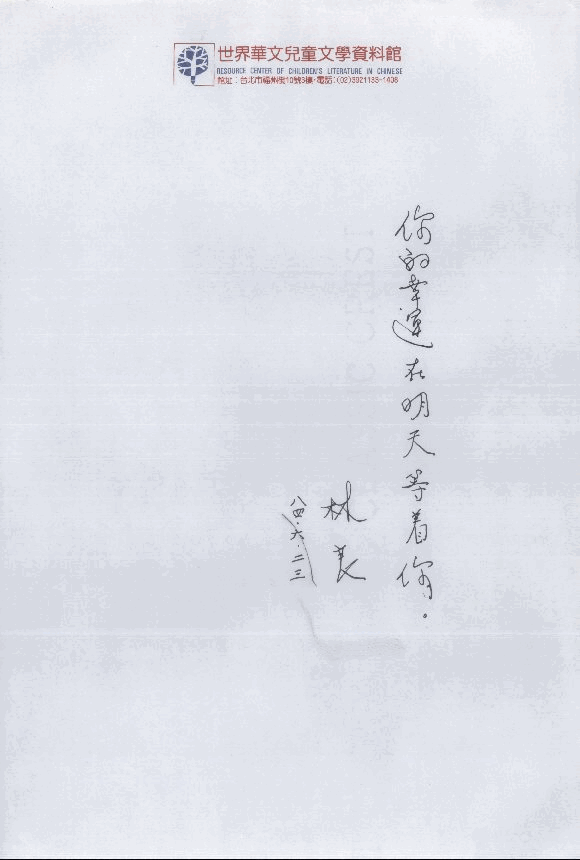 世界華文兒童文學資料館
RESOURCE CENTER OF CHILDREN'S LITERATURE IN CHINESE
地址：台北市福州街10號3樓·電話：(02)3921133-1408
你的幸運在明天等着你。
林良
八四·六·二三